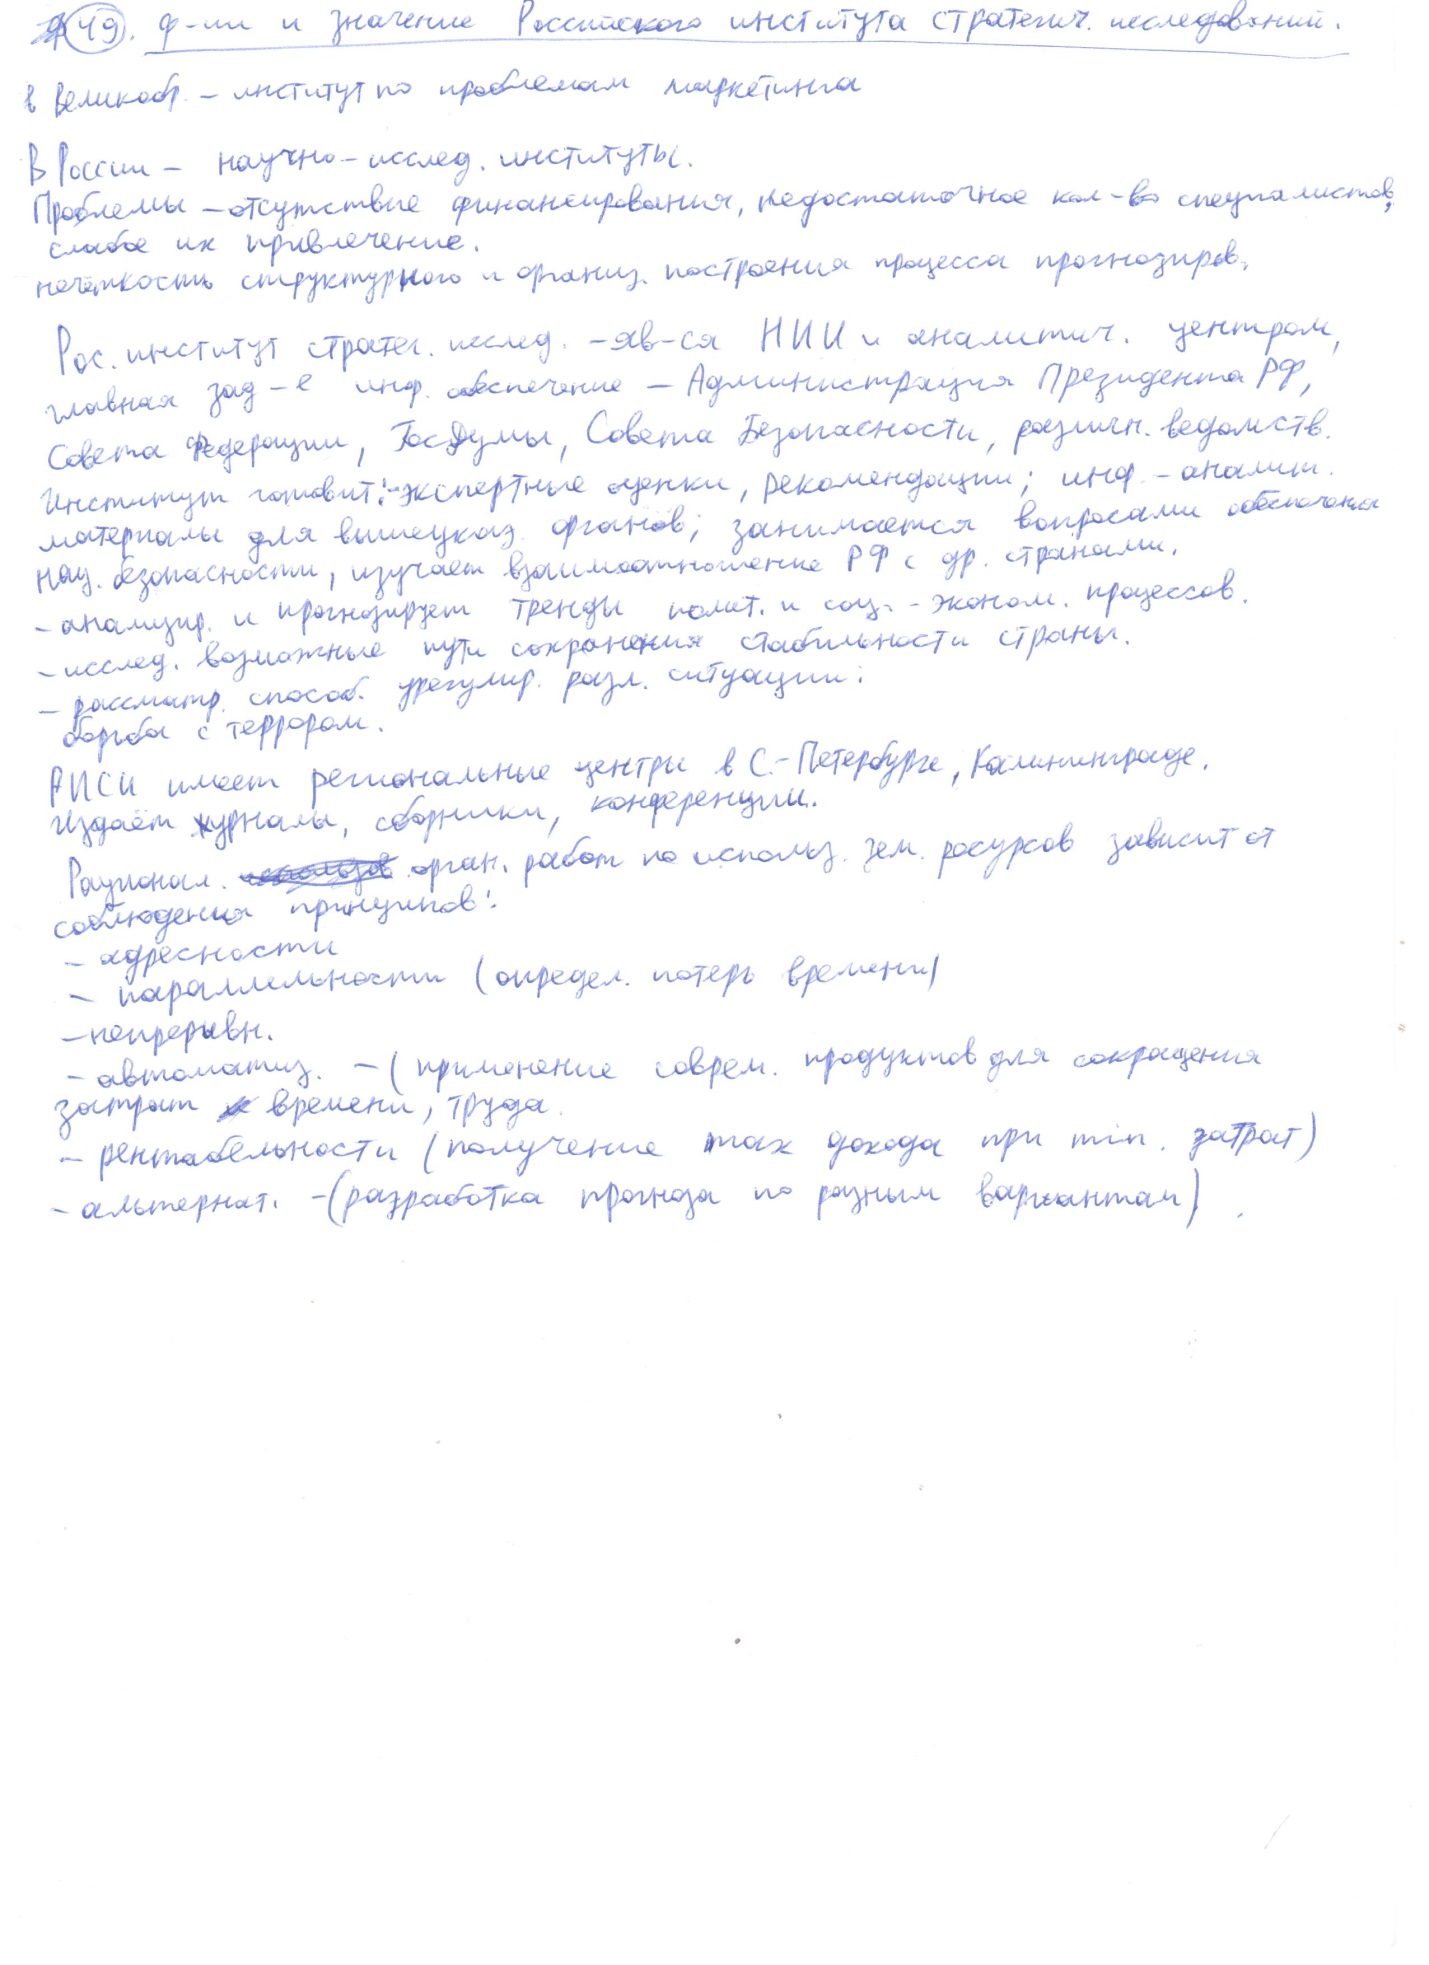 49. ф-ии и значение Российского института стратегич. исследований.
в Великобр. - институт по проблемам маркетинга
В России - научно-исслед. институты.
Проблемы - отсутствие финансирования, недостаточное кол-во специалистов,
слабое их привлечение.
нечёткость структурного и организ. построения процесса прогнозиров.
Рос. институт стратег. исслед. - яв-ся НИИ и аналитич. центром,
главная зад-е инф. обеспечение - Администрация Президента РФ,
Совета Федерации, ГосДумы, Совета Безопасности, различн. ведомств.
Институт готовит: - экспертные оценки, рекомендации; инф.-аналит.
материалы для вышеуказ. органов; занимается вопросами обеспечения
нац. безопасности, изучает взаимоотношение РФ с др. странами.
- анализир. и прогнозирует тренды полит. и соц.-эконом. процессов.
- исслед. возможные пути сохранения стабильности страны.
- рассматр. способ. урегулир. разл. ситуации:
борьба с террором.
РИСИ имеет региональные центры в С.-Петербурге, Калининграде.
Издаёт журналы, сборники, конференции.
Рационал. орган. работ по использ. зем. ресурсов зависит от
соблюдения принципов:
- адресности
- параллельности (определ. потерь времени)
- непрерывн.
- автоматиз. - (применение соврем. продуктов для сокращения
затрат времени, труда.
- рентабельности (получение max дохода при min. затрат)
- альтернат. - (разработка прогноза по разным вариантам).